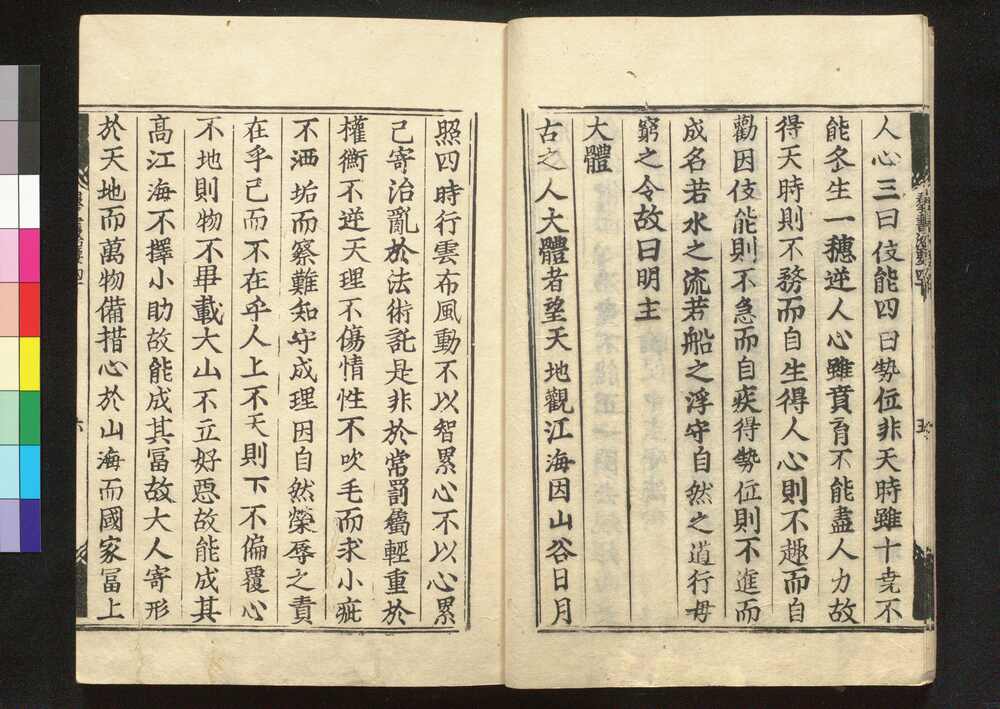 人心三曰伎能四曰勢位非天時雖十尭不
能冬生一穗逆人心雖賁育不能盡人力故
得天時則不務而自生得人心則不趣而自
勸因伎能則不急而自疾得勢位則不進而
成名若水之流若船之浮守自然之道行毋
窮之令故曰明主
大體
古之人大體者望天地觀江海因山谷日月
照四時行雲布風動不以智累心不以心累
己寄治亂於法術託是非於常罰屬輕重於
權衡不逆天理不傷情性不吹毛而求小疵
不洒垢而察難知守成理因自然榮辱之責
在乎己而不在乎人上不天則下不偏覆心
不地則物不畢載大山不立好惡故能成其
髙江海不擇小助故能成其冨故大人寄形
於天地而萬物備措心於山海而國家冨上
六